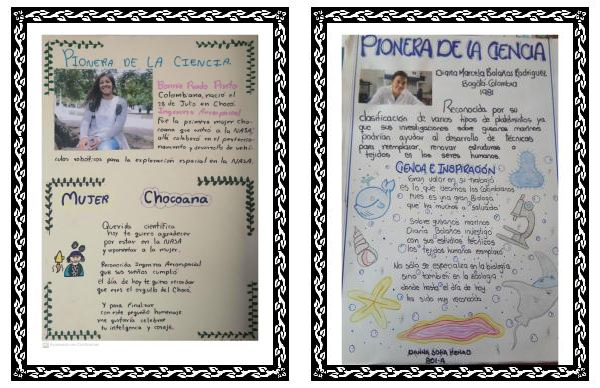 PIONERA DE LA CIENCIA
Bonnie Prado Pinto
Colombiana, nació el
28 de Julio en Chocó.
Ingeniera Aeroespacial
Fue la primera mujer cho-
coana que entró a la NASA,
allí colaboró en el perfeccio-
namiento y desarrollo de vehí-
culos robóticos para la exploración espacial en la NASA.
MUJER Chocoana
Querida científica
hoy te quiero agradecer
por estar en la NASA
y representar a la mujer.
Reconocida Ingeniera Aeroespacial
que sus sueños cumplió
el día de hoy te quiero recordar
que eres el orgullo del Chocó.
Y para finalizar
con este pequeño homenaje
me gustaría celebrar
tu inteligencia y coraje.
PIONERA DE LA CIENCIA
Diana Marcela Bolaños Rodriguez
Bogotá Colombia
1981
Reconocida por su
clasificación de varios tipos de platelmintos ya
que sus investigaciones sobre gusanos marinos
podrían ayudar al desarrollo de técnicas
para reemplazar, renovar estructuras o
tejidos en los seres humanos.
CIENCIA E INSPIRACIÓN
Gran valor en su trabajo
es lo que vemos los colombianos
Pues es una gran Bióloga
que ha muchos a salvado
Sobre gusanos marinos
Diana Bolaños investigó
con sus estudios técnicos
los tejidos humanos
No sólo se especializa en la biología
sino también en la
donde hasta el día de hoy
ha sido muy reconocida
DANNA SOFIA HENAO
801-A